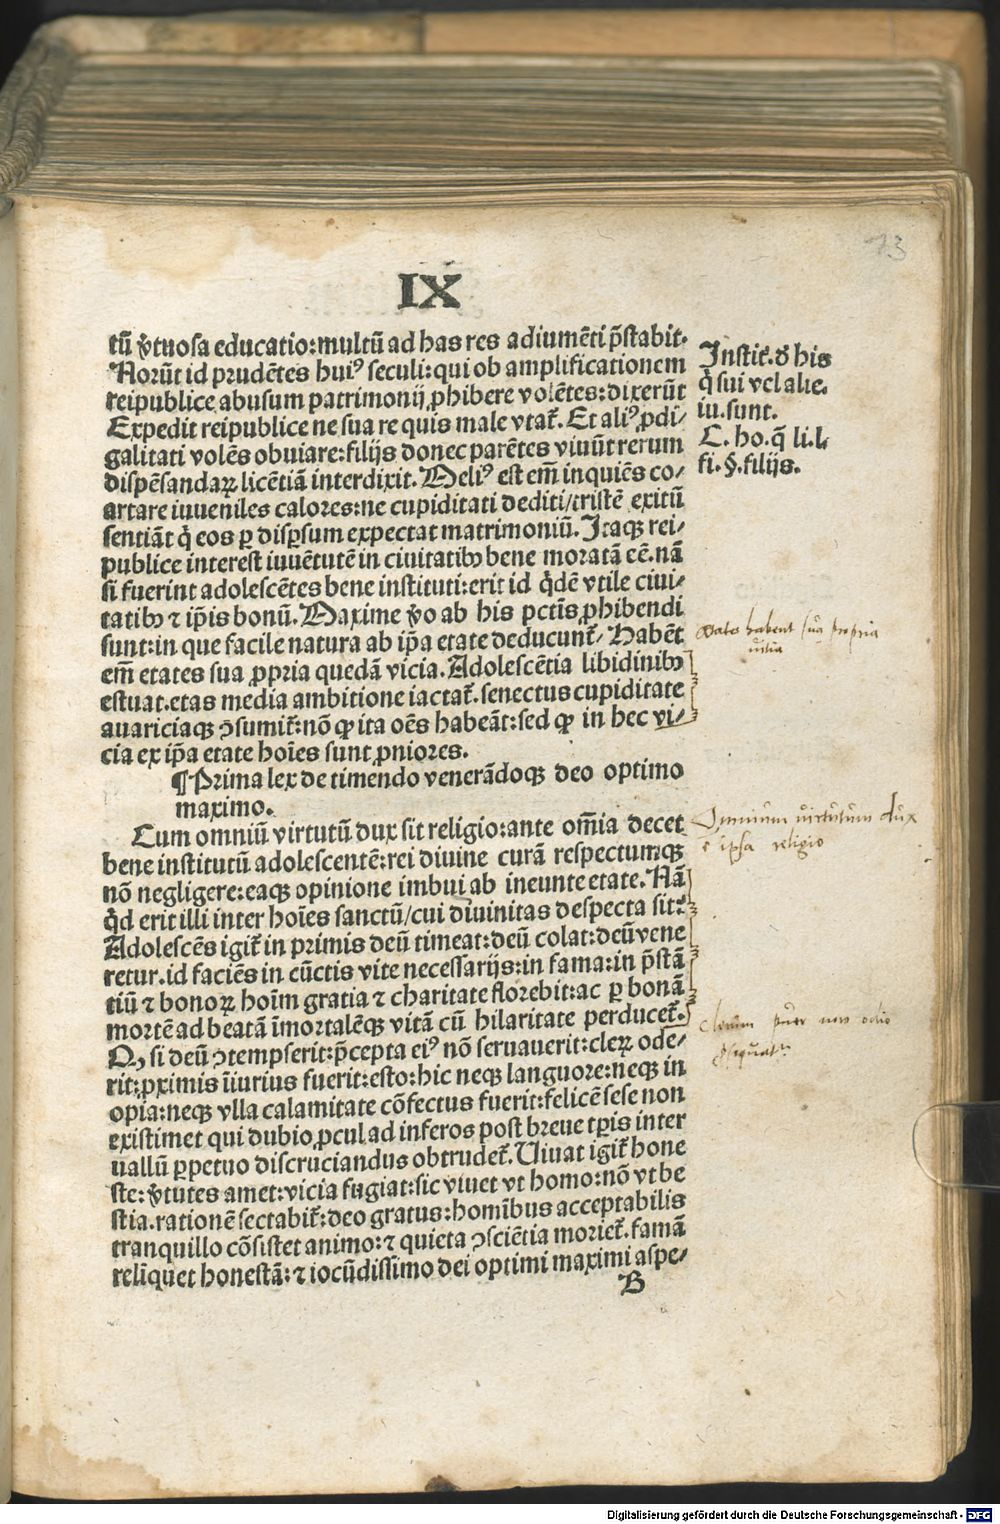 73
IX
tū v̄tuosa educatio:multū ad has res adiumēti p̄stabit.
Norūt id prudētes huiꝰ seculi:qui ob amplificationem
reipublice abusum patrimonij ꝓhibere volētes:dixerūt
Expedit reipublice ne sua re quis male vtat̄. Et aliꝰ ꝓdi/
galitati volēs obuiare:filijs donec parētes viuūt rerum
dispēsandaꝝ licētiā interdixit. Meliꝰ est em̄ inquiēs co/
artare iuueniles calores:ne cupiditati dediti/tristē exitū
sentiāt q̇ eos ꝑ disꝑsum expectat matrimoniū. Itaqꝫ rei/
publice interest iuuētutē in ciuitatibꝰ bene moratā eē.nā
si fuerint adolescētes bene instituti:erit id q̇dē vtile ciui/
tatibꝰ ⁊ ip̄is bonū. Maxime v̄o ab his pctīs ꝓhibendi
sunt:in que facile natura ab ip̄a etate deducunt̄. Habēt
em̄ etates sua ꝓpria quedā vicia. Adolescētia libidinibꝰ
estuat.etas media ambitione iactat̄.senectus cupiditate
auariciaqꝫ ↄsumit̄:nō ꝙ ita oēs habeāt:sed ꝙ in hec vi/
cia ex ip̄a etate hoīes sunt ꝓniores.
¶Prima lex de timendo venerādoqꝫ deo optimo
maximo.
Cum omniū virtutū dux sit religio:ante om̄ia decet
bene institutū adolescentē:rei diuine curā respectumqꝫ
nō negligere:eaqꝫ opinione imbui ab ineunte etate. Nā
q̇d erit illi inter hoīes sanctū/cui diuinitas despecta sit:
Adolescēs igit̄ in primis deū timeat:deū colat:deū vene
retur.id faciēs in cūctis vite necessarijs:in fama:in p̄stā
tiū ⁊ bonoꝝ hoīm gratia ⁊ charitate florebit:ac ꝑ bonā
mortē ad beatā īmortalēqꝫ vitā cū hilaritate perducet̄.
Ꝙ si deū ↄtempserit:p̄cepta eiꝰ nō seruauerit:cleꝝ ode/
rit:ꝓximis īiurius fuerit:esto:hic neqꝫ languore:neqꝫ in
opia:neqꝫ vlla calamitate cōfectus fuerit:felicē sese non
existimet qui dubio ꝓcul ad inferos post breue tꝑis inter
uallū ꝑpetuo discruciandus obtrudet̄. Uiuat igit̄ hone
ste:v̄tutes amet:vicia fugiat:sic viuet vt homo:nō vt be
stia.rationē sectabit̄:deo gratus:homībus acceptabilis
tranquillo cōsistet animo:⁊ quieta ↄsciētia moriet̄.famā
relīquet honestā:⁊ iocūdissimo dei optimi maximi aspe/
B
Instit̄.d̄ his
q̄ sui vel alie.
iu.sunt.
C. ho.q̄ li.l.
fi.§.filijs.
habent sua propria
uitia
Omnium uirtutum dux
ē ipsa religio
puer non odio